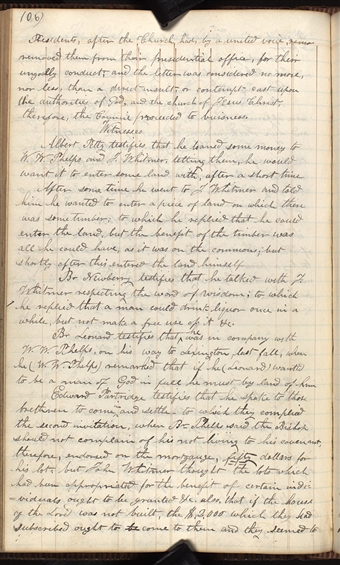 (06)
Presidents, after the Church had, by a united voice,
removed them from their presidential office, for their
ungodly conduct, and the letter was considered no more,
nor less, than a direct insult, or contempt cast upon
the authorities of God, and the church of Jesus Christ,
therefore, the Council proceeded to business.
Witnesses
Albert Petty testifies that he loaned some money to
W. W. Phelps, and J. Whitmer, letting them, he would
want it to enter some land with, after a short time
After some time he went to J. Whitmer and told
him he wanted to enter a piece of land on which there
was some timber; to which he replied that he could
enter the land, but the benefit of the timber was
all he could have, as it was on the commons; but
shortly after this, entered the land himself.
Br Newberry testifies that he talked with J.
Whitmer respecting the word of wisdom; to which
he replied that a man could drink liquor once in a
while, but not make a free use of it &c.
Br. Leonard testifies that he was in company with
W. W. Phelps, on his way to Lexington, last fall, when
he (W. W. Phelps) remarked that if he (Leonard) wanted
to be a man of God in full he must buy land of him
Edward Partridge testifies that he spoke to those
brethren to come and settle to which they complied
the second invitation, when Br Phelps said the Bishop
should not complain of his not living to his covenant,
therefore, endorsed on the mortgage, fifty dollars for
his lot, but John Whitmer thought the lots which
had been appropriated for the benefit of certain indi-
viduals ought to be granted &c also, that if the House
of the Lord was not built, the $2,000 which they had
subscribed ought to come to them and they seemed to